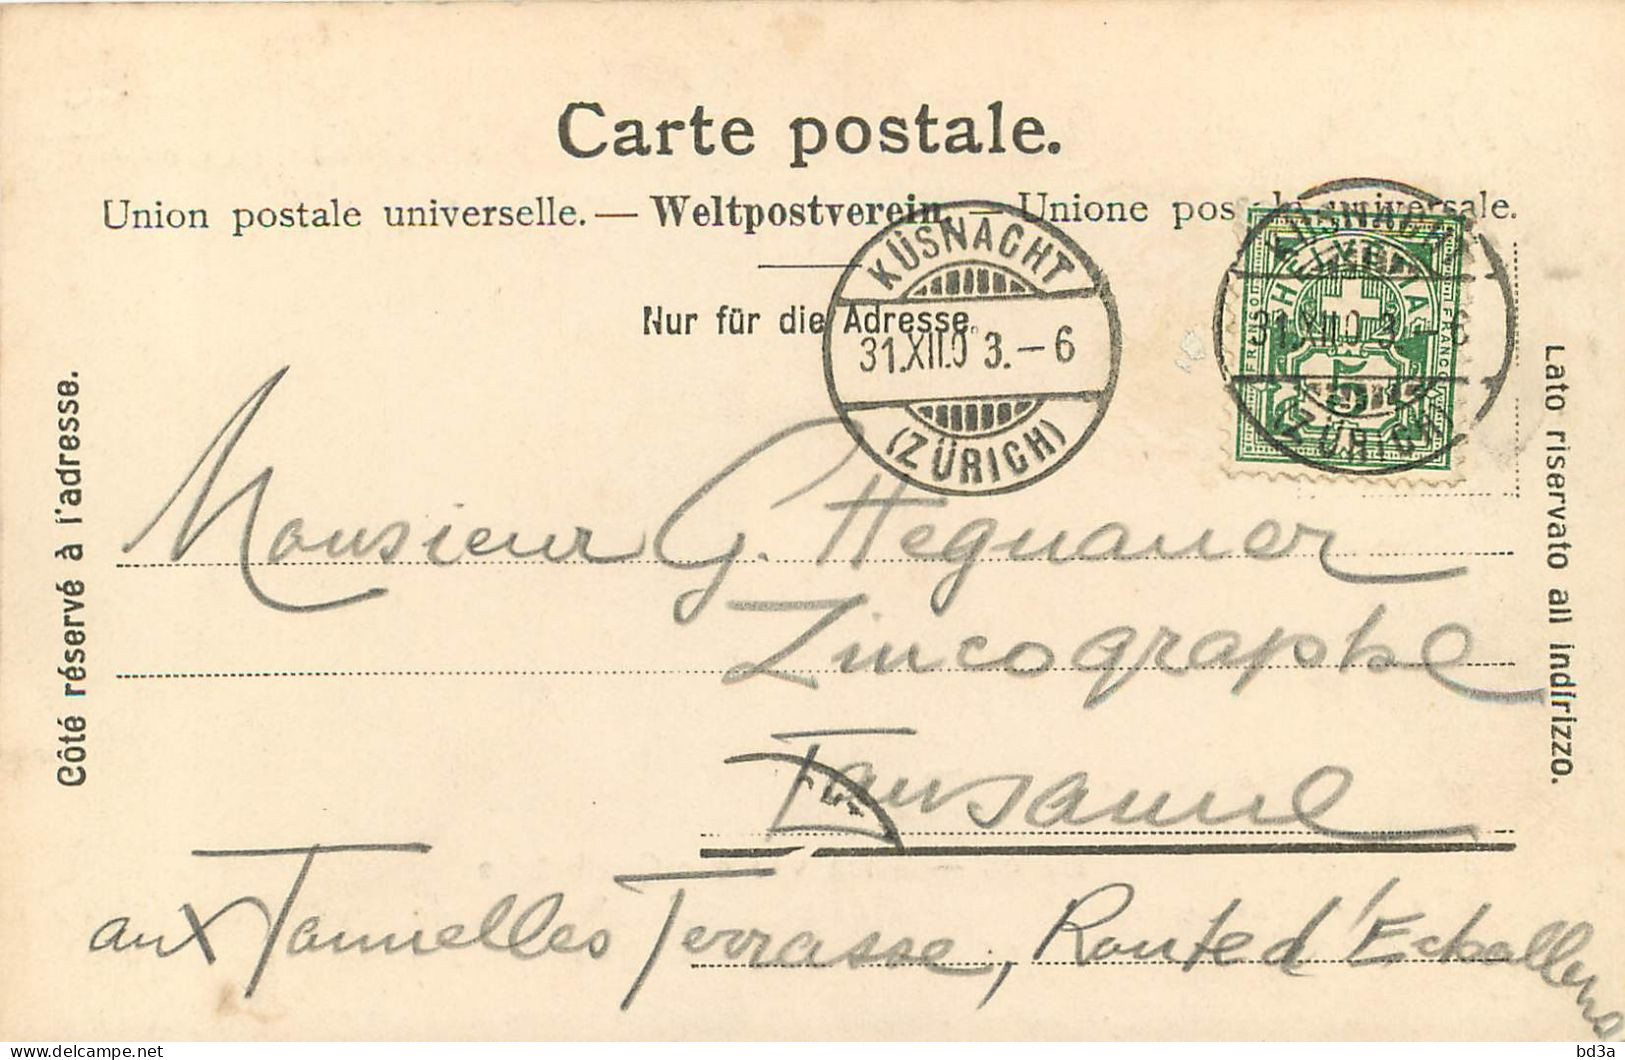 Carte postale.
Union postale universelle. — Weltpostverein. — Unione postale universale.
Nur für die Adresse.
Côté réservé à l'adresse.
Lato riservato all indirizzo.
KÜSNACHT
31.XII.03.–6
(ZÜRICH)
KÜSNACHT
31.XII.03.–6
(ZÜRICH)
HELVETIA
FRANCO
5
Monsieur G. Hegnauer
Zincographe
Lausanne
aux Jaunelles Terrasse, Route d'Echallens
bd3a